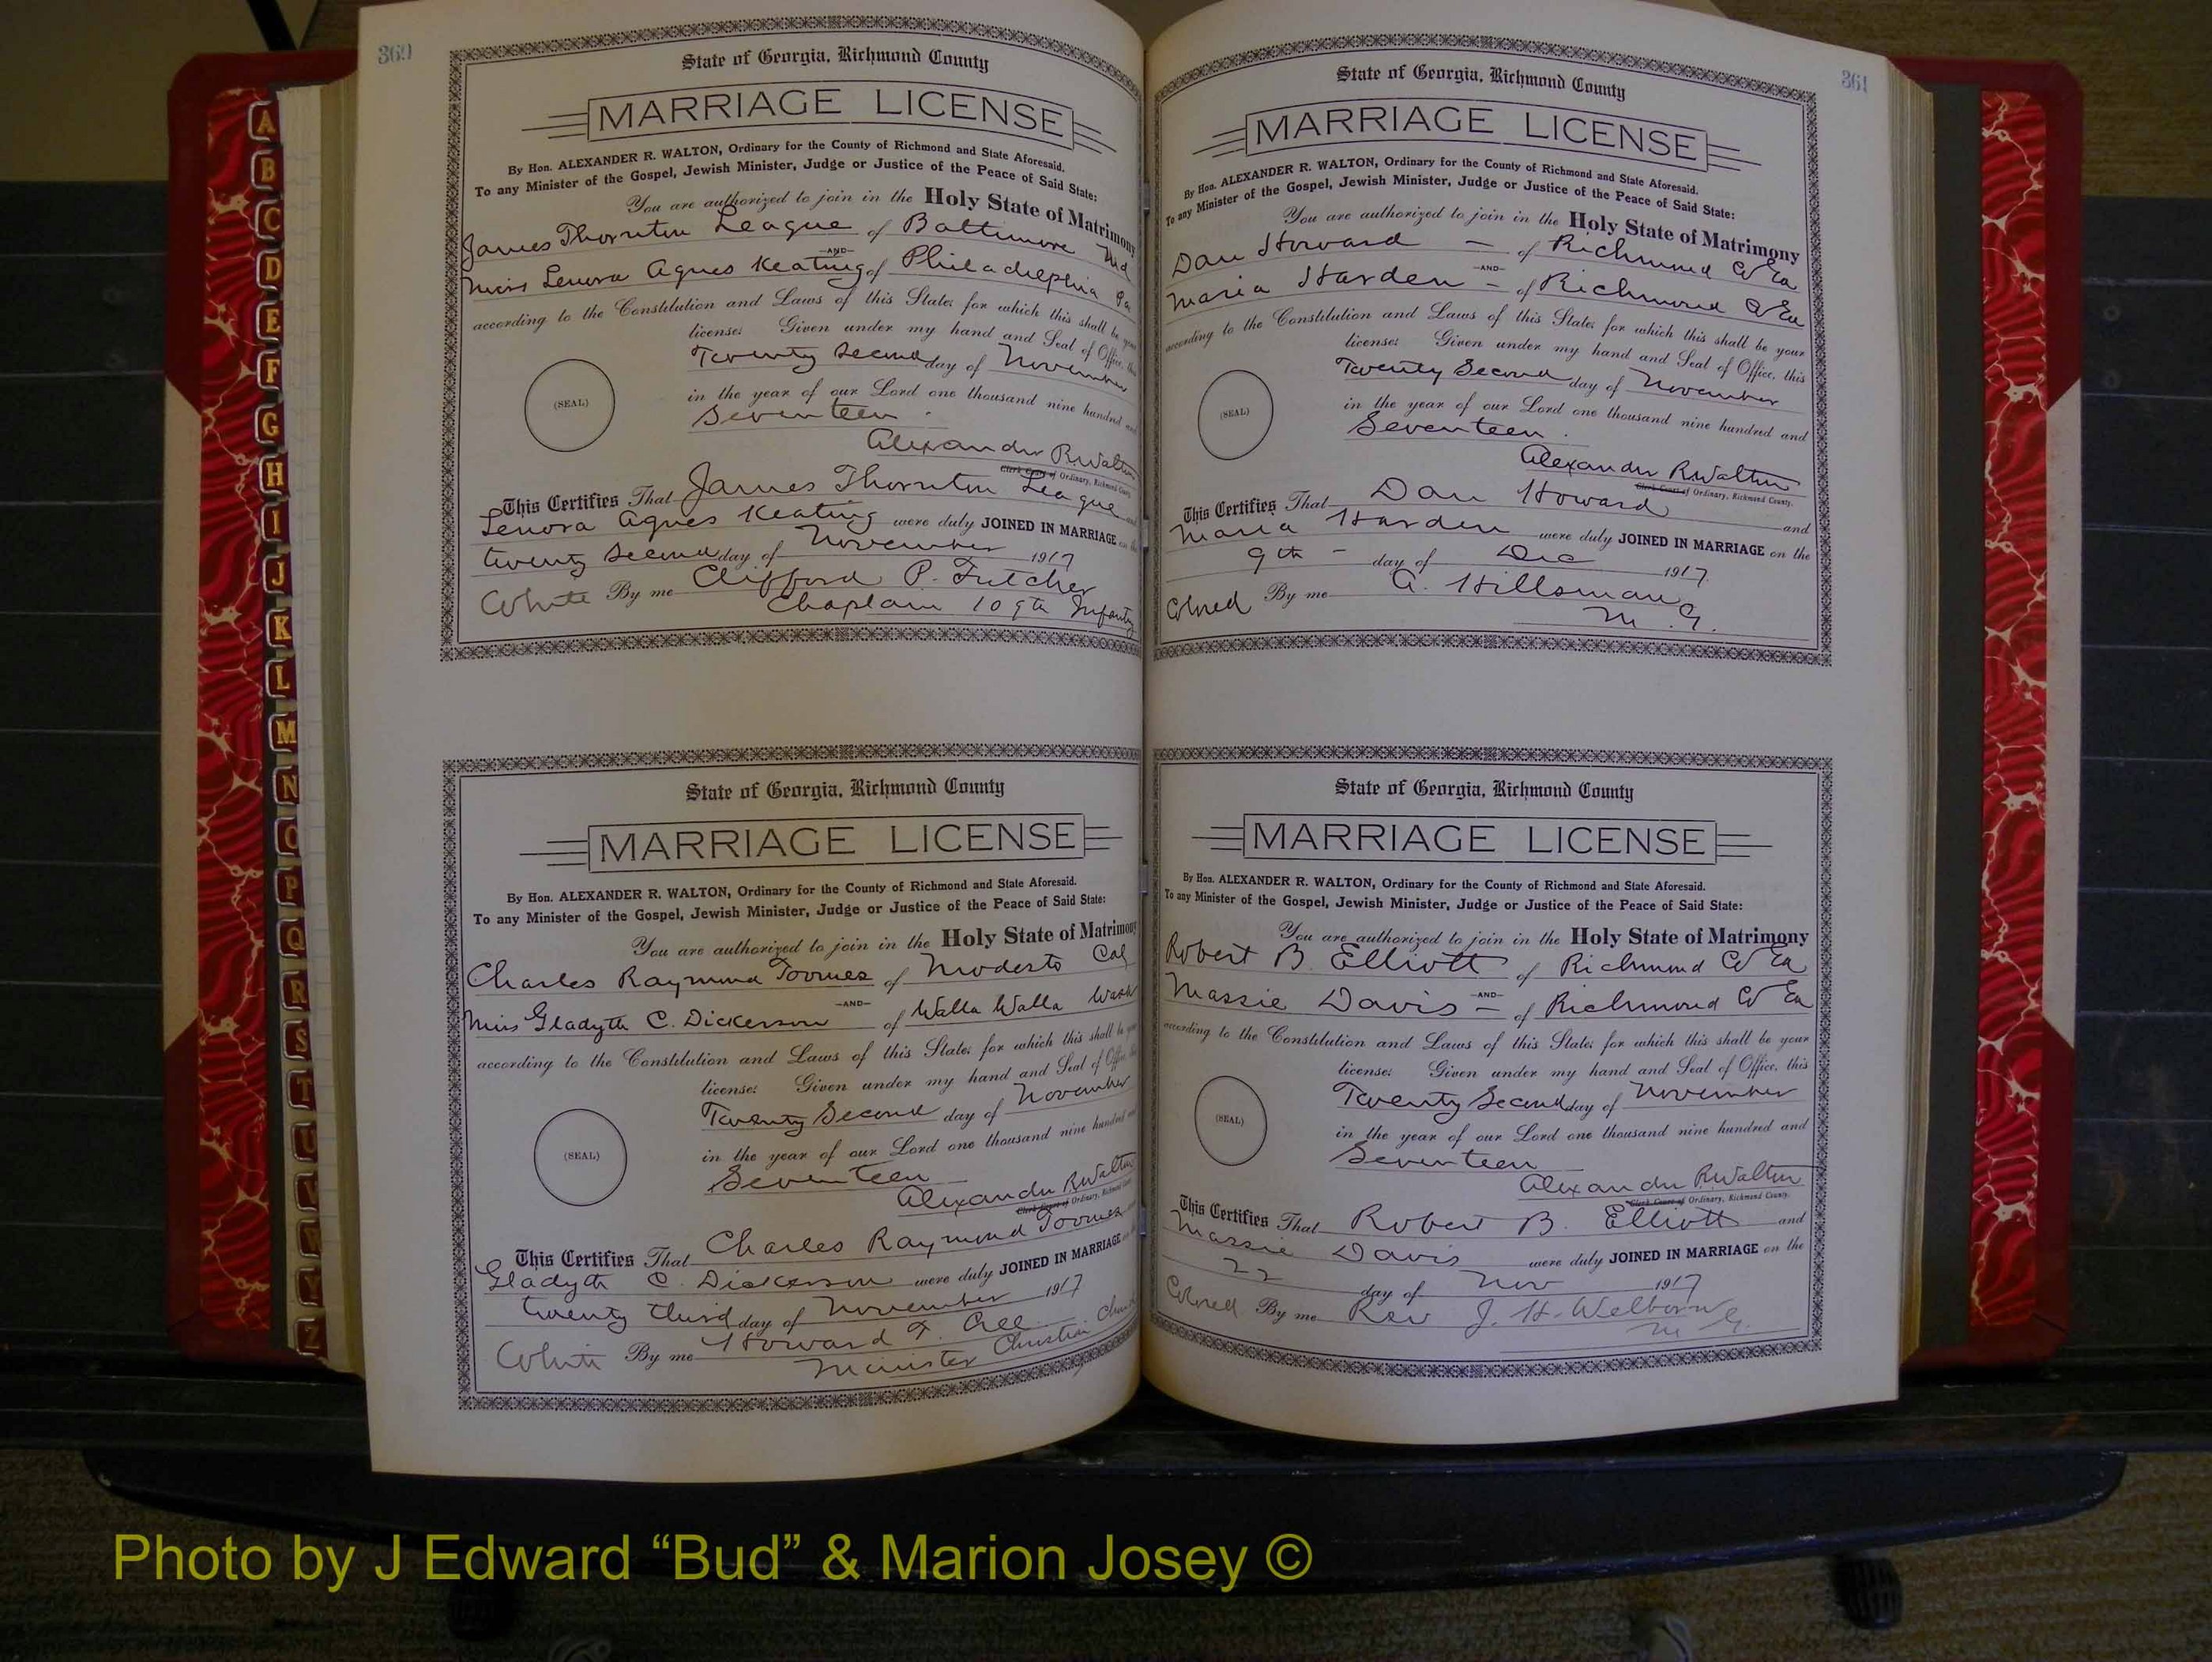 360
State of Georgia, Richmond County
MARRIAGE LICENSE
By Hon. ALEXANDER R. WALTON, Ordinary for the County of Richmond and State Aforesaid.
To any Minister of the Gospel, Jewish Minister, Judge or Justice of the Peace of Said State:
You are authorized to join in the Holy State of Matrimony
James Thornton League of Baltimore Md
—AND—
Miss Lenora Agnes Keating of Philadelphia Pa
according to the Constitution and Laws of this State; for which this shall be your
license: Given under my hand and Seal of Office, this
Twenty Second day of November
in the year of our Lord one thousand nine hundred and
Seventeen.
(SEAL)
Alexander R. Walton
Clerk Court of Ordinary, Richmond County.
This Certifies That James Thornton League and
Lenora Agnes Keating were duly JOINED IN MARRIAGE on the
twenty second day of November 1917
White By me Clifford P. Futcher
Chaplain 109th Infantry
State of Georgia, Richmond County
MARRIAGE LICENSE
By Hon. ALEXANDER R. WALTON, Ordinary for the County of Richmond and State Aforesaid.
To any Minister of the Gospel, Jewish Minister, Judge or Justice of the Peace of Said State:
You are authorized to join in the Holy State of Matrimony
Charles Raymond Toomes of Modesto Cal
—AND—
Miss Gladyth C. Dickerson of Walla Walla Wash
according to the Constitution and Laws of this State; for which this shall be your
license: Given under my hand and Seal of Office, this
Twenty Second day of November
in the year of our Lord one thousand nine hundred and
Seventeen
(SEAL)
Alexander R Walton
Clerk Court of Ordinary, Richmond County.
This Certifies That Charles Raymond Toomes and
Gladyth C. Dickerson were duly JOINED IN MARRIAGE on the
twenty third day of November 1917
White By me Howard T. Cree
Minister Christian Church
361
State of Georgia, Richmond County
MARRIAGE LICENSE
By Hon. ALEXANDER R. WALTON, Ordinary for the County of Richmond and State Aforesaid.
To any Minister of the Gospel, Jewish Minister, Judge or Justice of the Peace of Said State:
You are authorized to join in the Holy State of Matrimony
Dan Howard — of Richmond Co Ga
—AND—
Maria Harden — of Richmond Co Ga
according to the Constitution and Laws of this State; for which this shall be your
license: Given under my hand and Seal of Office, this
Twenty Second day of November
in the year of our Lord one thousand nine hundred and
Seventeen.
(SEAL)
Alexander R Walton
Clerk Court of Ordinary, Richmond County.
This Certifies That Dan Howard and
Maria Harden were duly JOINED IN MARRIAGE on the
9th — day of Dec 1917.
Colored By me G. Hillsman
M.G.
State of Georgia, Richmond County
MARRIAGE LICENSE
By Hon. ALEXANDER R. WALTON, Ordinary for the County of Richmond and State Aforesaid.
To any Minister of the Gospel, Jewish Minister, Judge or Justice of the Peace of Said State:
You are authorized to join in the Holy State of Matrimony
Robert B. Elliott of Richmond Co Ga
—AND—
Massie Davis — of Richmond Co Ga
according to the Constitution and Laws of this State; for which this shall be your
license: Given under my hand and Seal of Office, this
Twenty Second day of November
in the year of our Lord one thousand nine hundred and
Seventeen
(SEAL)
Alexander R Walton
Clerk Court of Ordinary, Richmond County.
This Certifies That Robert B. Elliott and
Massie Davis were duly JOINED IN MARRIAGE on the
22 day of Nov 1917
Colored By me Rev J. H. Welborn
M G.
A
B
C
D
E
F
G
H
I
J
K
L
M
N
O
P
Q
R
S
T
U
V
W
Y
Z
Photo by J Edward “Bud” & Marion Josey ©